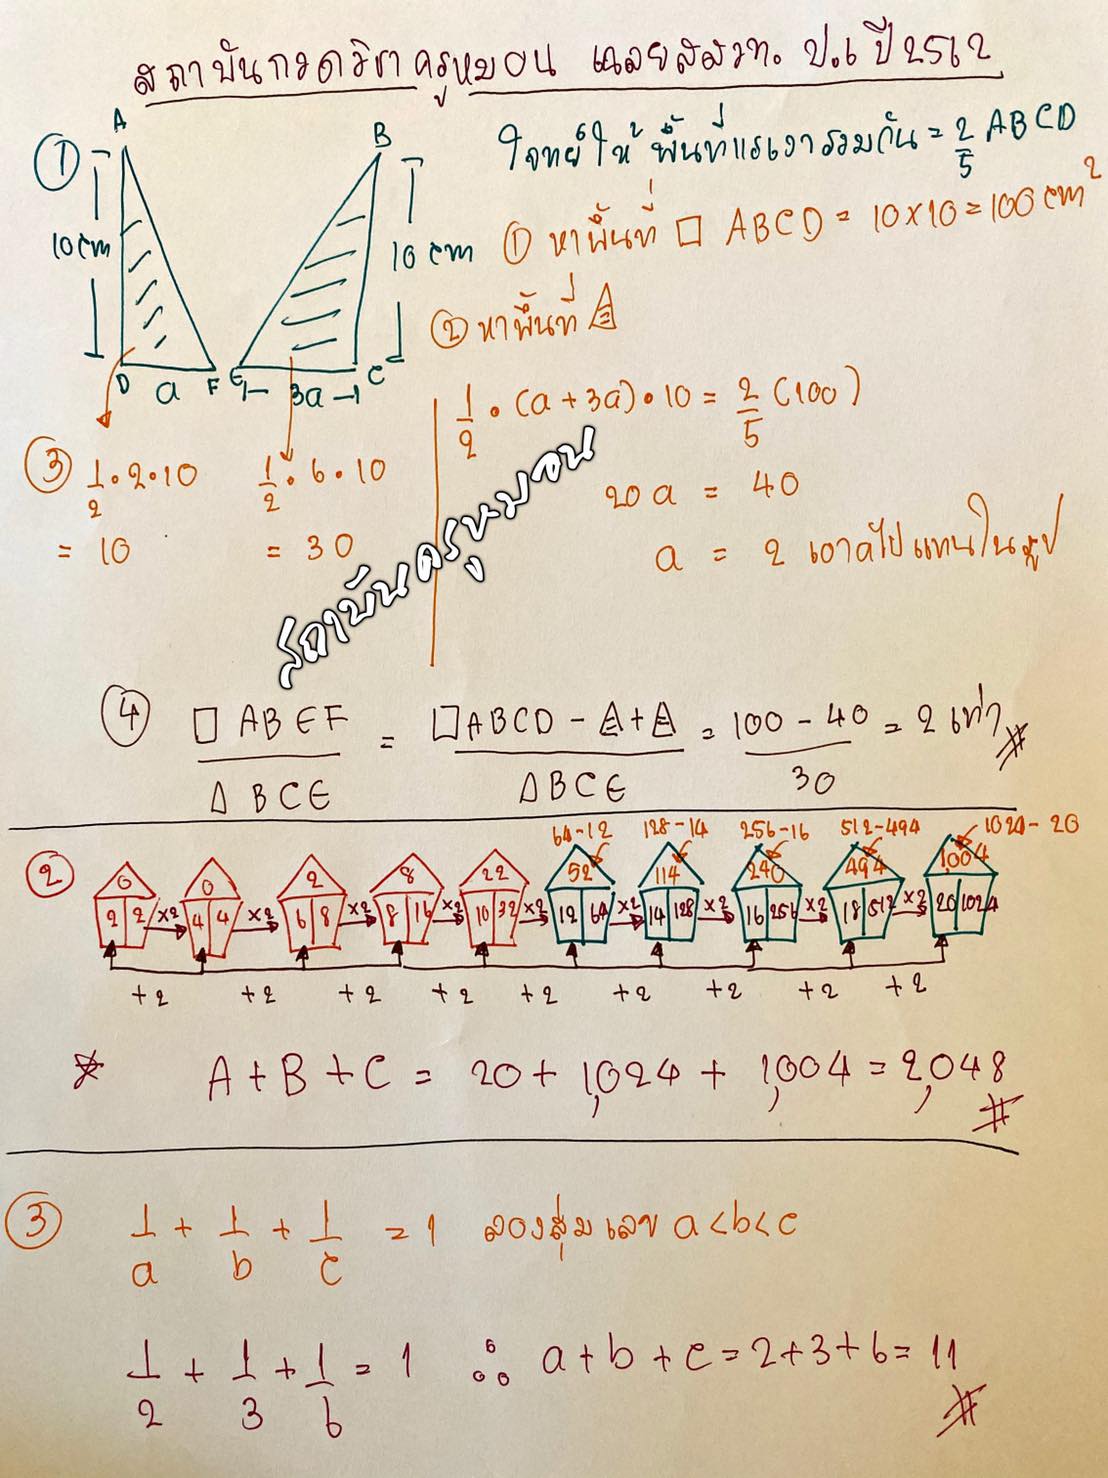 สถาบันกวดวิชาครูหมอน เฉลยสสวท. ป.6 ปี 2512
① A B โจทย์ให้ พื้นที่แรเงารวมกัน = 2/5 ABCD
10 cm 10 cm ① หาพื้นที่ □ ABCD = 10×10 = 100 cm²
② หาพื้นที่ △
D a F E 3a C
1/2 • (a + 3a) • 10 = 2/5 (100)
③ 1/2 • 2 • 10 1/2 • 6 • 10
20a = 40
= 10 = 30
a = 2 เอาaไปแทนในรูป
สถาบันครูหมอน
④ □ ABEF / △ BCE = □ABCD - △+△ / △BCE = 100 - 40 / 30 = 2 เท่า #
64-12 128-14 256-16 512-494 1024-20
② 0 0 2 8 22 52 114 240 494 1,004
2 2 ×2 4 4 ×2 6 8 ×2 8 16 ×2 10 32 ×2 12 64 ×2 14 128 ×2 16 256 ×2 18 512 ×2 20 1024
+2 +2 +2 +2 +2 +2 +2 +2 +2
A + B + C = 20 + 1,024 + 1,004 = 2,048 #
③ 1/a + 1/b + 1/c = 1 ลองสุ่มเลข a<b<c
1/2 + 1/3 + 1/6 = 1 ∴ a + b + c = 2+3+6 = 11 #